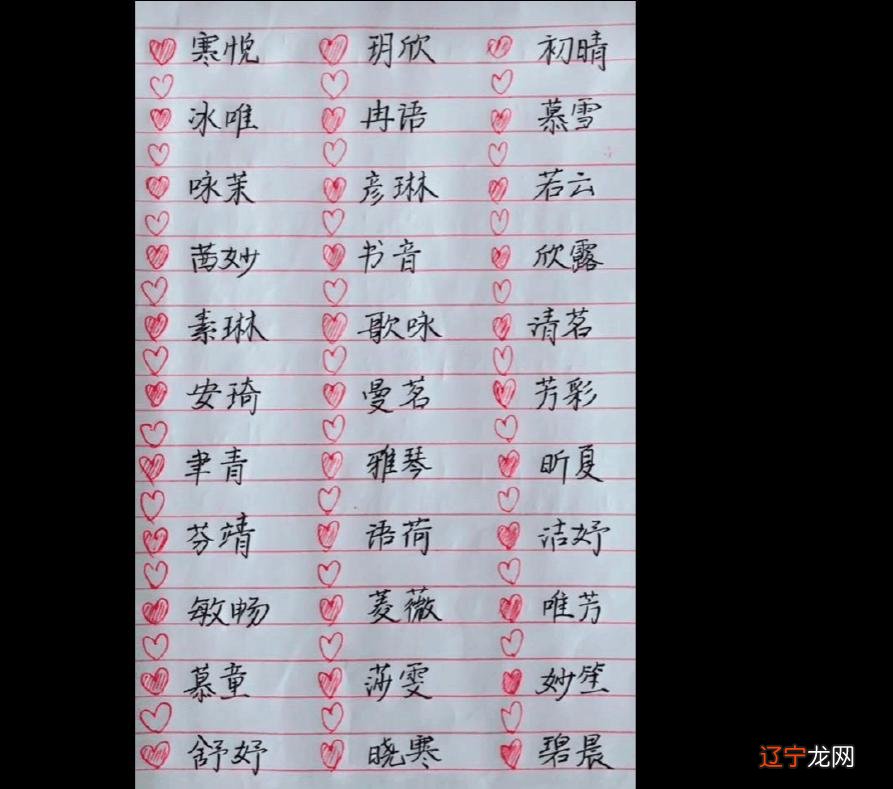 寒悦 玥欣 初晴
冰唯 冉语 慕雪
咏茉 彦琳 若云
茜妙 书音 欣露
素琳 歌咏 清茗
安琦 曼茗 芳彩
聿青 雅琴 昕夏
芬靖 语荷 洁妤
敏畅 菱薇 唯芳
慕童 雯 妙笙
舒妤 晓寒 碧晨
辽宁龙网